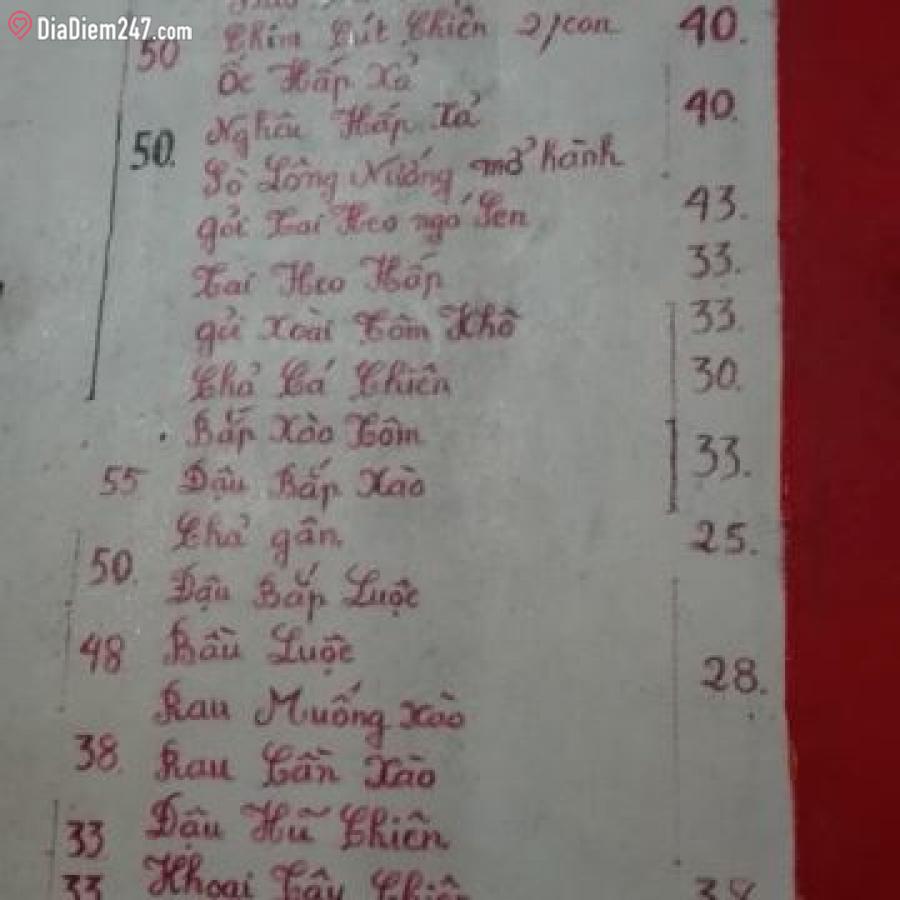 DiaDiem247.com
50 Chim Cút Chiên 2/con 40.
Ốc Hấp Xả
Nghêu Hấp Xả 40.
50. Sò Lông Nướng mở hành
gỏi Tai Heo ngó Sen 43.
Tai Heo Hấp 33.
gỏi Xoài Tôm Khô 33.
Chả Cá Chiên 30.
Bắp Xào Tôm
55 Đậu Bắp Xào 33.
Chả gân 25.
50. Đậu Bắp Luộc
48 Bầu Luộc
Rau Muống Xào 28.
38. Rau Cần Xào
33 Đậu Hũ Chiên
33 Khoai Tây Chiên